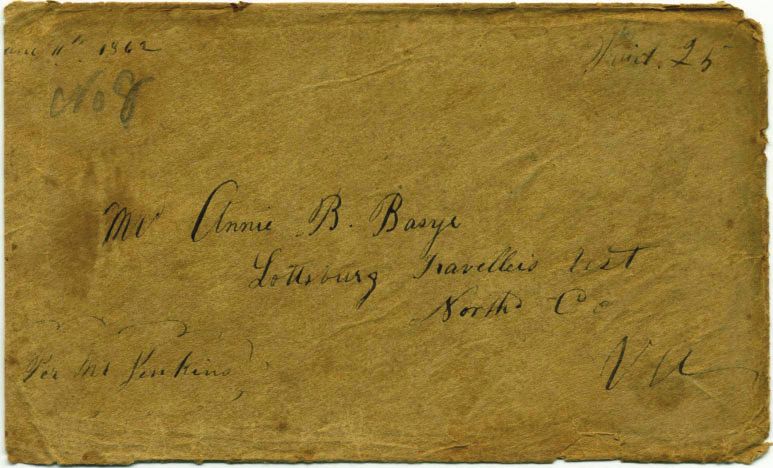 June 11th. 1862
Paid. 25
No 8
Mrs Annie B. Basye
Lottsburg Travellers Rest
North'd Co
Va
Per Mr Jenkins